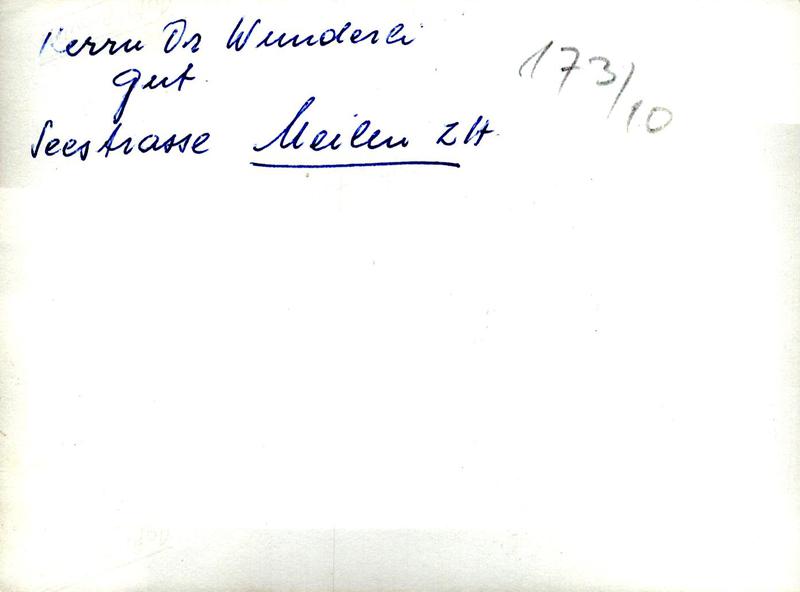 Herrn Dr Wunderli
Gut
Seestrasse Meilen ZH
173/10